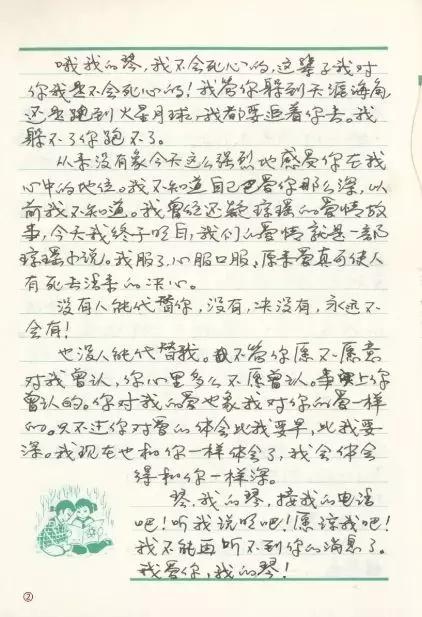 哦我的琴，我不会死心的，这辈子我对
你我是不会死心的！我管你躲到天涯海角，
还是跑到火星月球，我都要追着你去。我
躲不了你跑不了。
从来没有象今天这么强烈地感受你在我
心中的地位。我不知道自己已爱你那么深，以
前我不知道。我曾经还疑琼瑶的爱情故
事，今天我终于明白，我们的爱情就是一部
琼瑶小说。我服了，心服口服，原来爱真可使人
有死去活来的决心。
没有人能代替你，没有，决没有，永远不
会有！
也没人能代替我。不管你愿不愿意
对我曾认，你心里多么不愿曾认。事实上你
曾认的。你对我的爱也象我对你的爱一样
的。只不过你对爱的体会比我要早，比我要
深。我现在也和你一样体会了，我会体会
得和你一样深。
琴，我的琴，接我的电话
吧！听我说明吧！原谅我吧！
我不能再听不到你的消息了。
我爱你，我的琴！
②